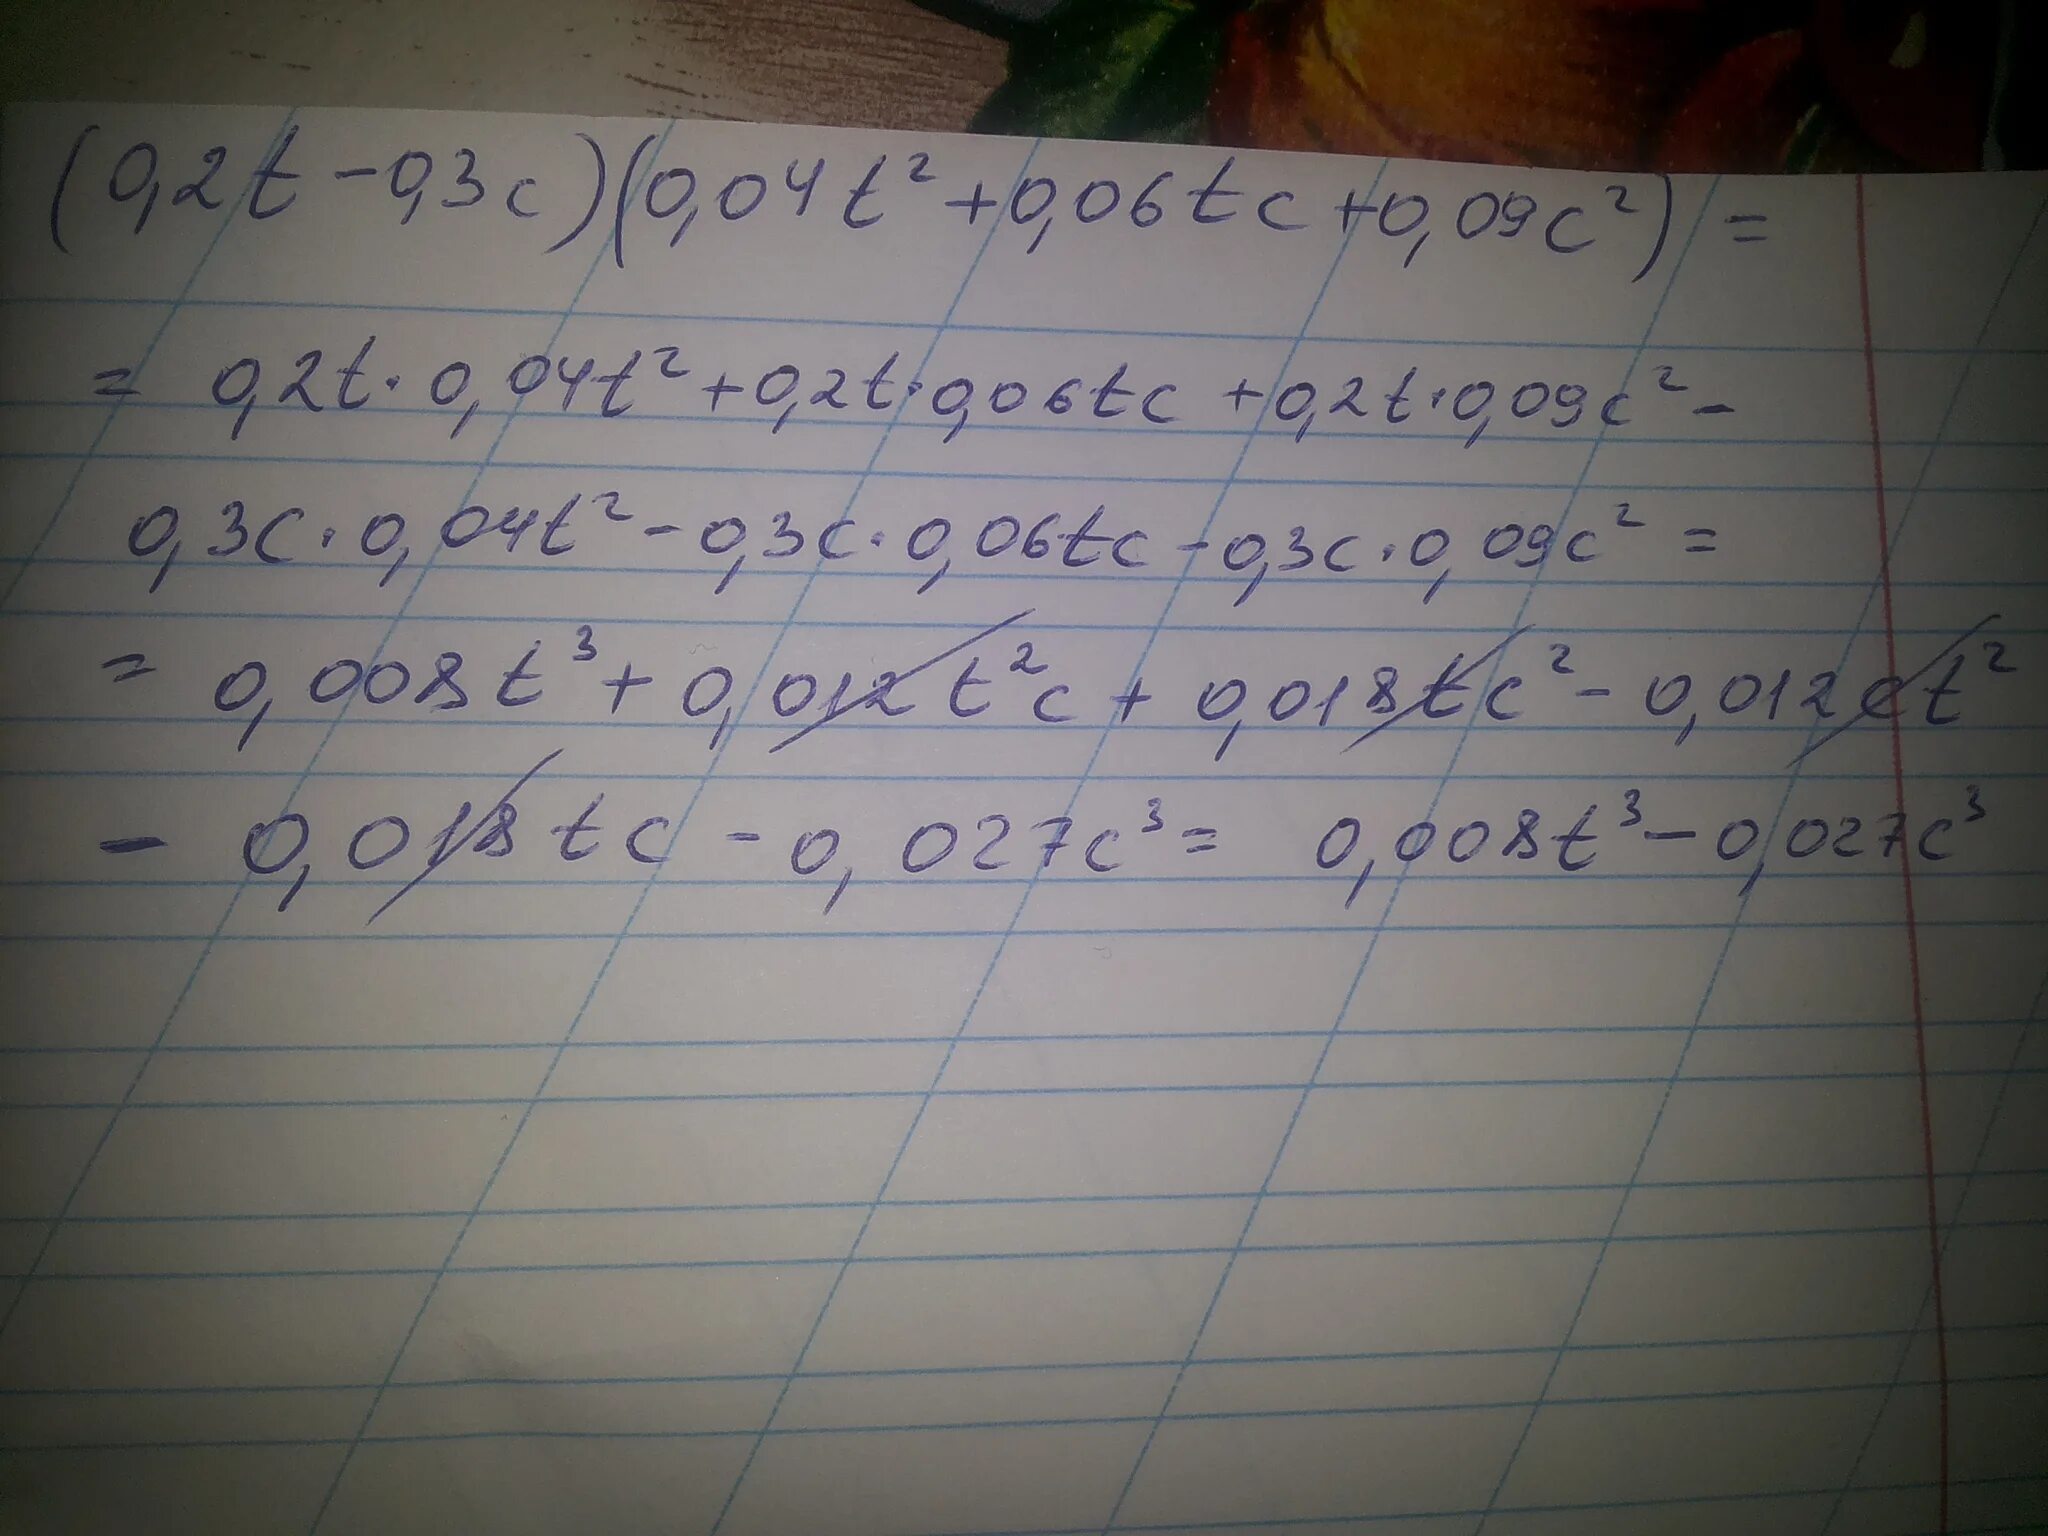 (0,2t-0,3c)(0,04t²+0,06tc+0,09c²)=
= 0,2t·0,04t²+0,2t·0,06tc+0,2t·0,09c²-
0,3c·0,04t²-0,3c·0,06tc-0,3c·0,09c²=
= 0,008t³+0,012t²c+0,018tc²-0,012ct²
- 0,018tc-0,027c³= 0,008t³-0,027c³